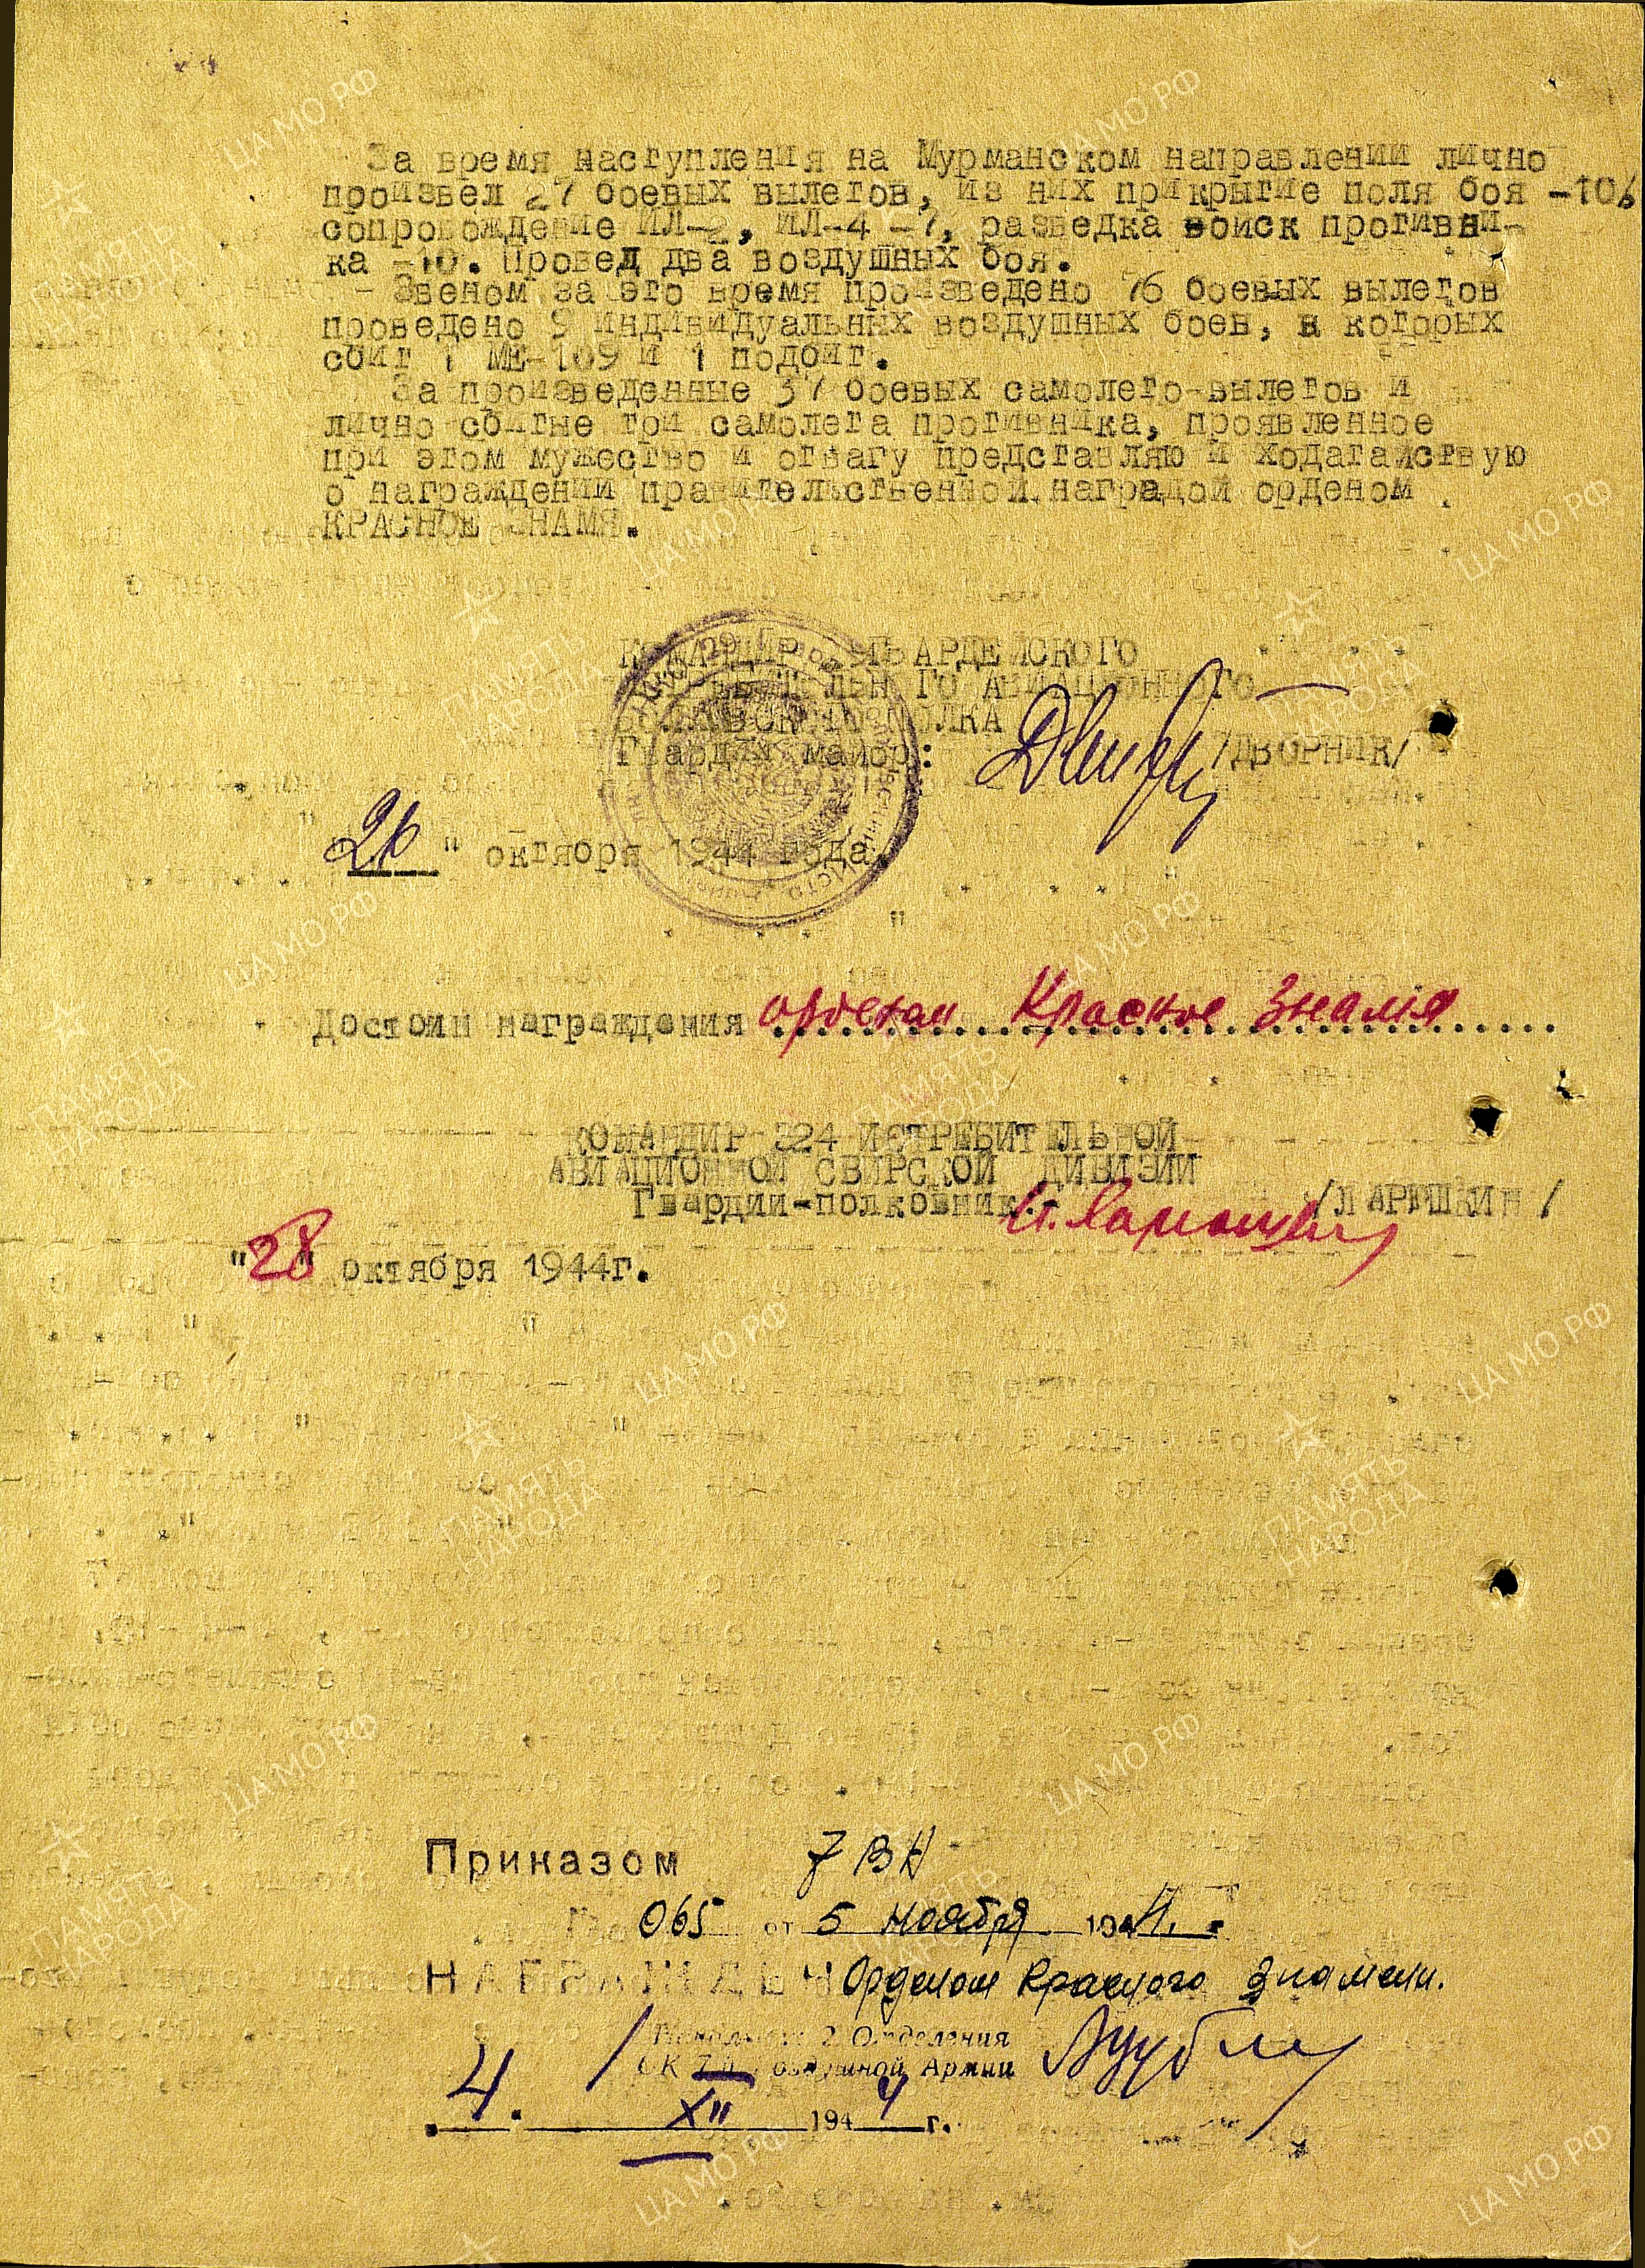 За время наступления на Мурманском направлении лично
произвел 27 боевых вылетов, из них прикрытие поля боя -10,
сопровождение ИЛ-2, ИЛ-4 -7, разведка войск противни-
ка -10. Провел два воздушных боя.
Звеном за это время произведено 76 боевых вылетов
проведено 9 индивидуальных воздушных боев, в которых
сбит 1 МЕ-109 и 1 подбит.
За произведенные 37 боевых самолето-вылетов и
лично сбитые три самолета противника, проявленное
при этом мужество и отвагу представляю и ходатайствую
о награждении правительственной наградой орденом
КРАСНОЕ ЗНАМЯ.
КОМАНДИР ГВАРДЕЙСКОГО
АВИАЦИОННОГО
ПОЛКА
Гвардии майор: /ДВОРНИК/
"26" октября 1944 года.
Достоин награждения орденом Красное Знамя
КОМАНДИР 324 ИСТРЕБИТЕЛЬНОЙ
АВИАЦИОННОЙ СВИРСКОЙ ДИВИЗИИ
Гвардии-полковник: И. Ларюшкин /ЛАРЮШКИН/
"28" октября 1944г.
Приказом 7 ВА
065 от 5 ноября 1944.
НАГРАЖДЕН Орденом Красного Знамени.
Начальник 2 Отделения
ОК 7-й Воздушной Армии
4. XII 1944 г.
ЦАМО РФ
ПАМЯТЬ
НАРОДА